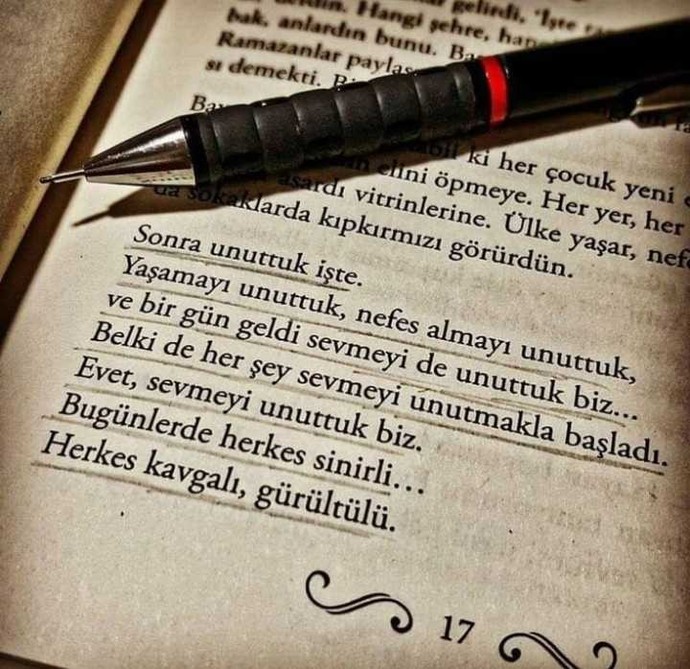 gelirdi, 'İşte
Hangi şehre,
bak, anlardın bunu.
Ramazanlar
sı demekti.
ki her çocuk yeni
elini öpmeye. Her yer, her
asardı vitrinlerine. Ülke yaşar, nefe
da sokaklarda kıpkırmızı görürdün.
Sonra unuttuk işte.
Yaşamayı unuttuk, nefes almayı unuttuk,
ve bir gün geldi sevmeyi de unuttuk biz...
Belki de her şey sevmeyi unutmakla başladı.
Evet, sevmeyi unuttuk biz.
Bugünlerde herkes sinirli...
Herkes kavgalı, gürültülü.
17